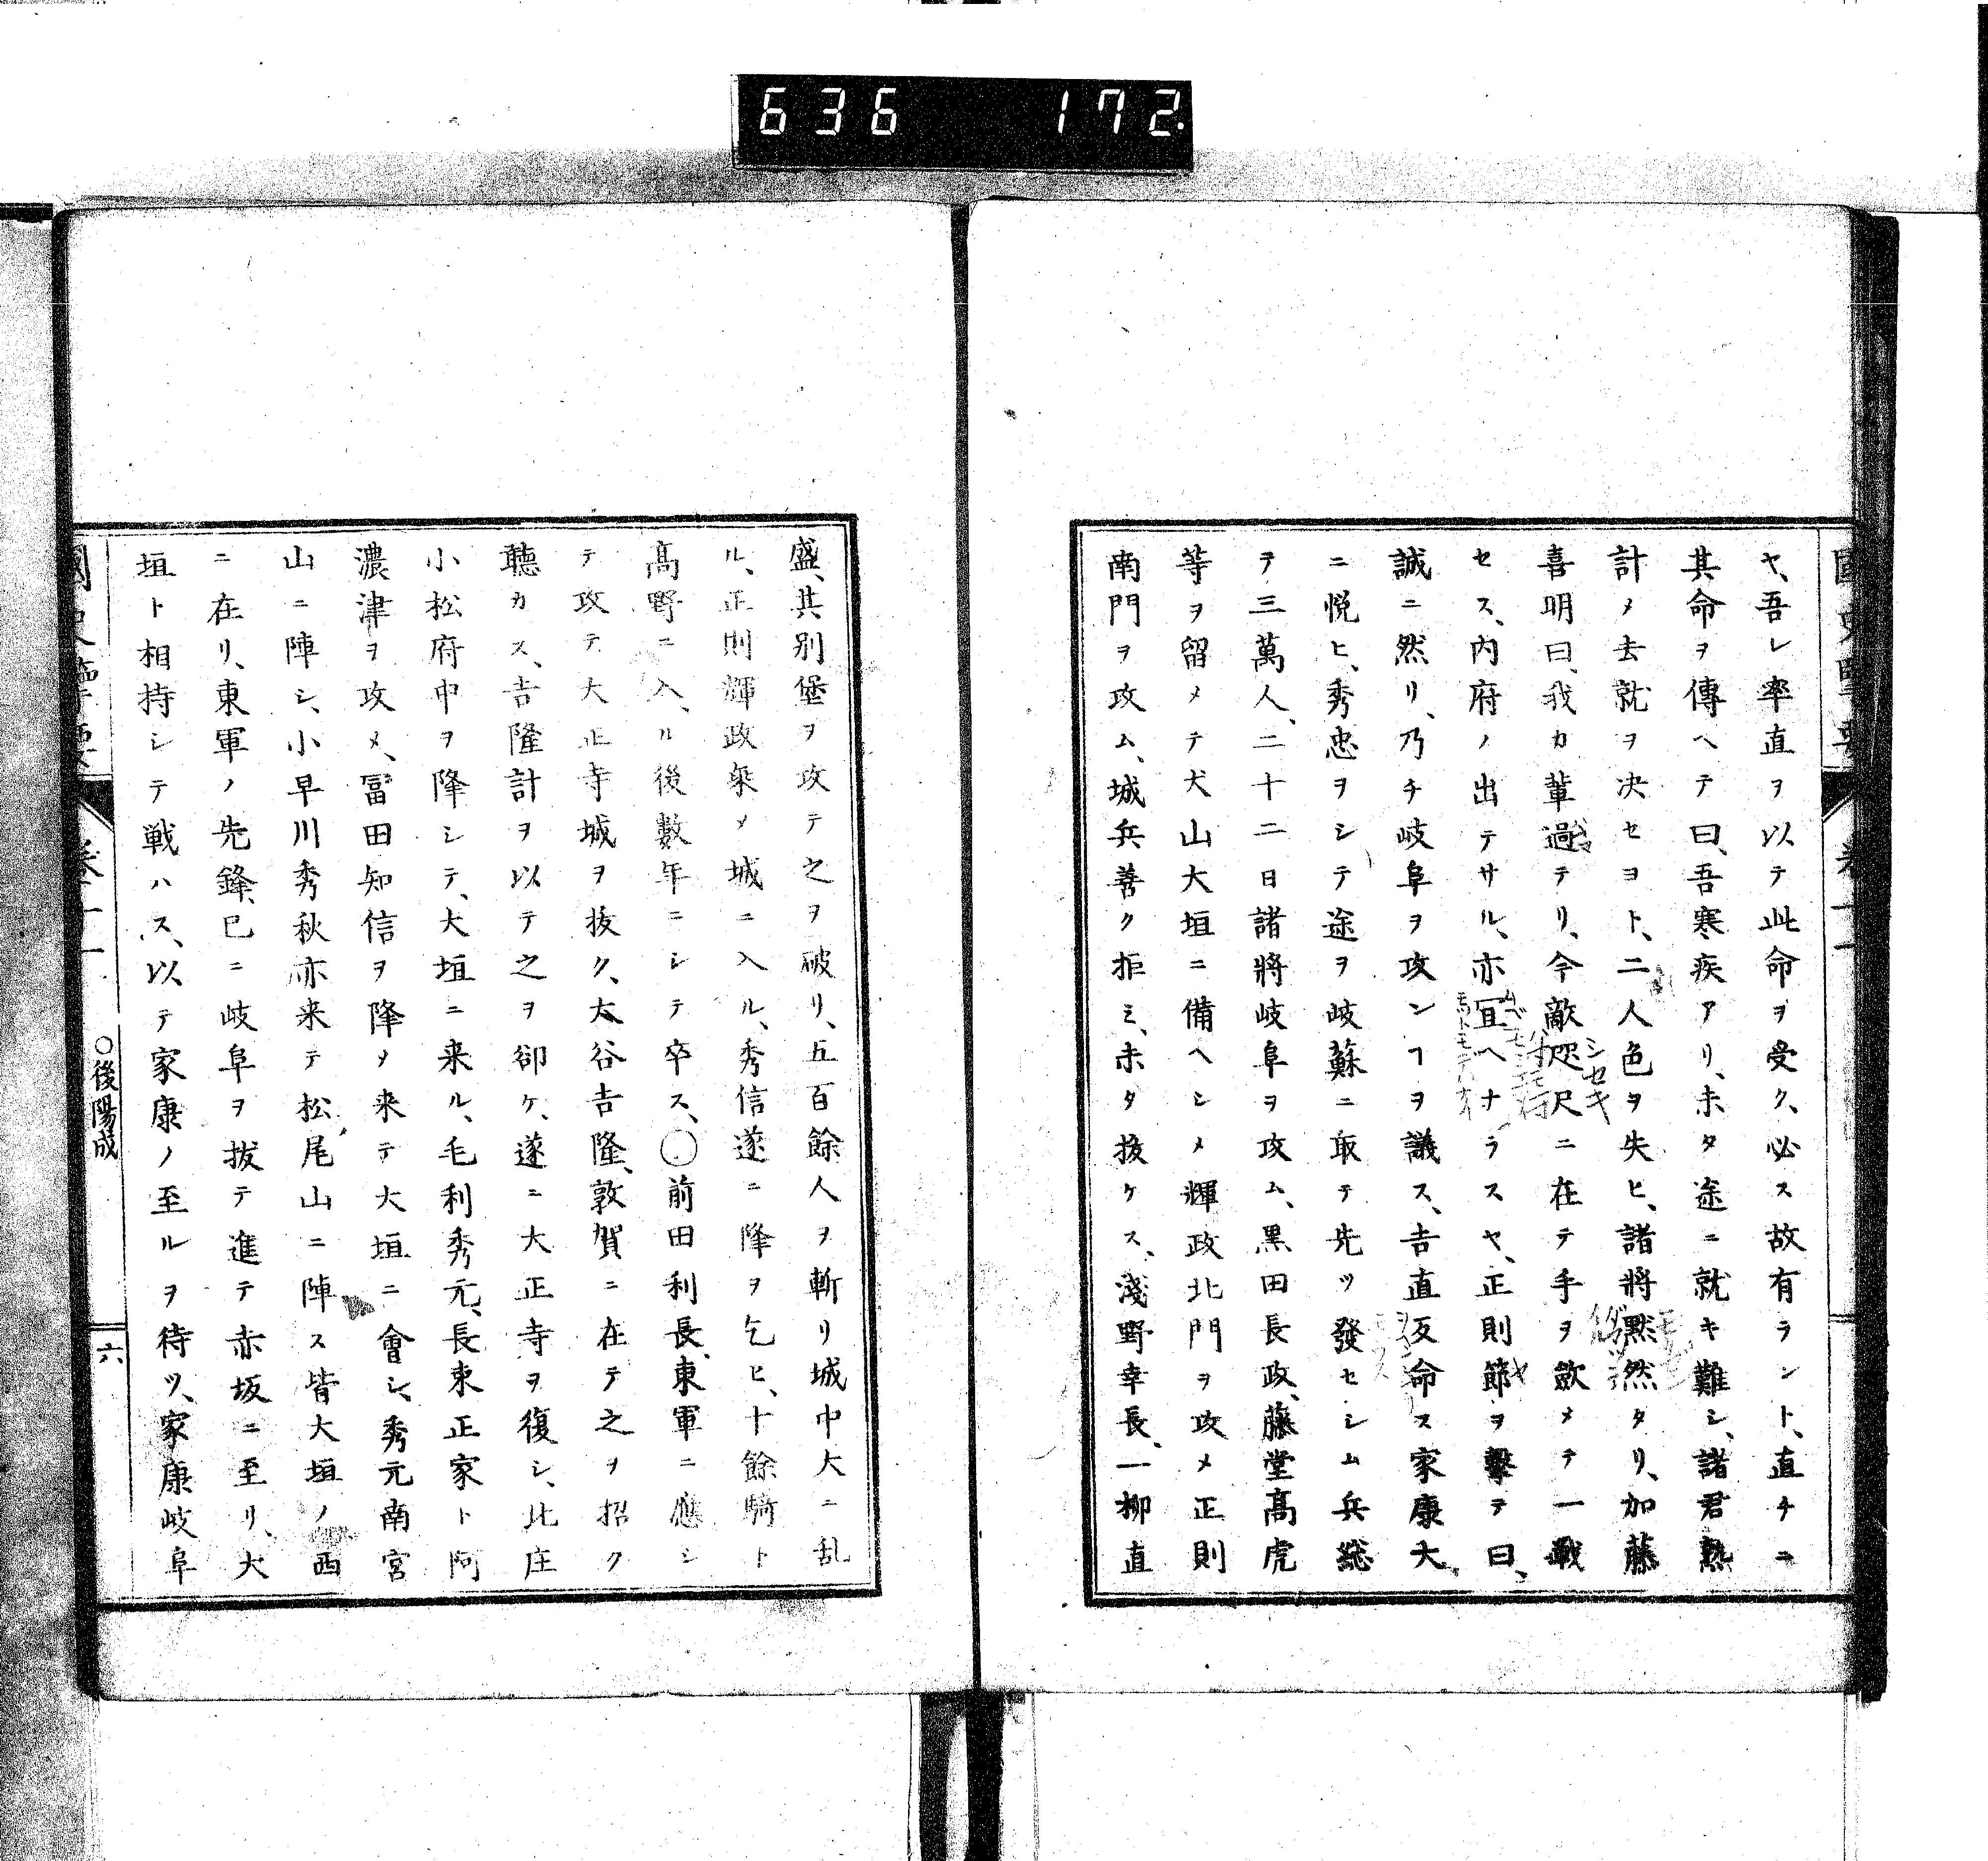 636 172.
ヤ、吾レ率直ヲ以テ此命ヲ受ク、必ス故有ラント、直チニ
其命ヲ傳ヘテ曰、吾寒疾アリ、未タ途ニ就キ難シ、諸君熟
計メ去就ヲ决セヨト、二人色ヲ失ヒ、諸將黙然タリ、加藤
喜明曰、我カ輩過テリ、今敵咫尺ニ在テ手ヲ歛メテ一戰
セス、内府ノ出テサル、亦冝ヘナラスヤ、正則節ヲ擊テ曰、
誠ニ然リ、乃チ岐阜ヲ攻ンヿヲ議ス、吉直反命ス家康大
ニ悦ヒ、秀忠ヲシテ途ヲ岐蘇ニ取テ先ツ發セシム兵総
ヲ三萬人、二十二日諸將岐阜ヲ攻ム、黒田長政、藤堂髙虎
等ヲ留メテ犬山大垣ニ備ヘシメ輝政北門ヲ攻メ正則
南門ヲ攻ム、城兵善ク拒ミ、未タ抜ケス、淺野幸長、一柳直
シセキ
盛、其別堡ヲ攻テ之ヲ破リ、五百餘人ヲ斬リ城中大ニ乱
ル、正則輝政乘メ城ニ入ル、秀信遂ニ降ヲ乞ヒ、十餘騎ト
髙野ニ入、ル後數年ニシテ卒ス、〇前田利長、東軍ニ應シ
テ攻テ大正寺城ヲ抜ク、大谷吉隆、敦賀ニ在テ之ヲ招ク
聽カス、吉隆計ヲ以テ之ヲ卻ケ、遂ニ大正寺ヲ復シ、北庄
小松府中ヲ降シテ、大垣ニ来ル、毛利秀元、長束正家ト阿
濃津ヲ攻メ、冨田知信ヲ降メ来テ大垣ニ會シ、秀元南宮
山ニ陣シ、小早川秀秋亦来テ松尾山ニ陣ス皆大垣ノ西
ニ在リ、東軍ノ先鋒、巳ニ岐阜ヲ拔テ進テ赤坂ニ至リ、大
垣ト相持シテ戦ハス、以テ家康ノ至ルヲ待ツ、家康岐阜
〇後陽成
六